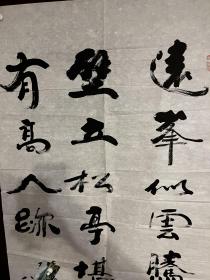 遠峯似雲騰
壁立松亭堪
有高人跡